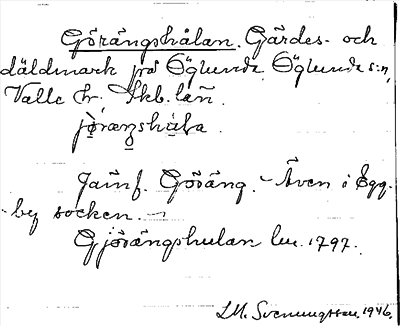 Görängshålan. Gärdes- och
däldmark på Öglunda, Öglunda s:n,
Valle hd, Skb. län.
Jämf. Göräng. - Även i Egg-
by socken. -
Gjörängshulan lm. 1797.
LM. Svenungsson. 1946.